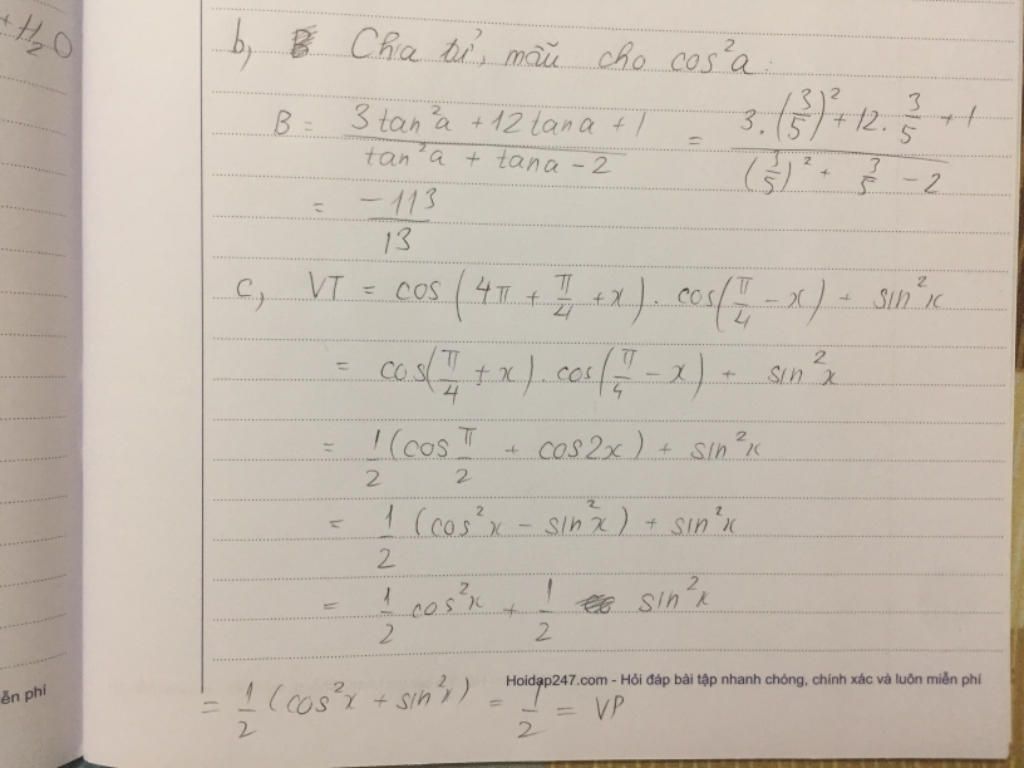 + H₂O
b, Chia tử, mẫu cho cos²a :
B = (3tan²a + 12tana + 1)/(tan²a + tana - 2) = (3.(3/5)² + 12. 3/5 + 1)/((3/5)² + 3/5 - 2)
= -113/13
c, VT = cos(4π + π/4 + x). cos(π/4 - x) + sin²x
= cos(π/4 + x). cos(π/4 - x) + sin²x
= 1/2 (cos π/2 + cos2x) + sin²x
= 1/2 (cos²x - sin²x) + sin²x
= 1/2 cos²x + 1/2 sin²x
ễn phí
Hoidap247.com - Hỏi đáp bài tập nhanh chóng, chính xác và luôn miễn phí
= 1/2 (cos²x + sin²x) = 1/2 = VP